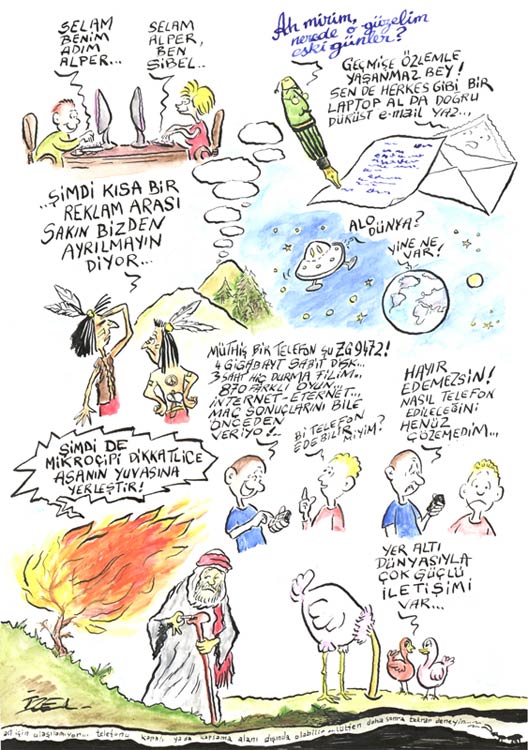 SELAM
BENİM
ADIM
ALPER...
SELAM
ALPER,
BEN
SİBEL..
Ah mirim,
nerede o güzelim
eski günler?
GEÇMİŞE ÖZLEMLE
YAŞANMAZ BEY!
SEN DE HERKES GİBİ BİR
LAPTOP AL DA DOĞRU
DÜRÜST e-mail YAZ...
..ŞİMDİ KISA BİR
REKLAM ARASI
SAKIN BİZDEN
AYRILMAYIN
DİYOR...
ALO
DÜNYA?
YİNE NE
VAR!
MÜTHİŞ BİR TELEFON ŞU ZG9472!
4 GİGABAYT SABİT DİSK...
3 SAAT HİÇ DURMA FİLİM..
870 FARKLI OYUN...
İNTERNET-ETERNET...
MAÇ SONUÇLARINI BİLE
ÖNCEDEN
VERİYO!..
Bİ TELEFON
EDEBİLİRİYİM?
HAYIR
EDEMEZSİN!
NASIL TELEFON
EDİLECEĞİNİ
HENÜZ
ÇÖZEMEDİM...
ŞİMDİ DE
MİKROÇİPİ DİKKATLİCE
ASANIN YUVASINA
YERLEŞTİR!
YER ALTI
DÜNYASIYLA
ÇOK GÜÇLÜ
İLETİŞİMİ
VAR...
için ulaşılamıyor... telefonu kapalı ya da kapsama alanı dışında olabilir lütfen daha sonra tekrar deneyin...